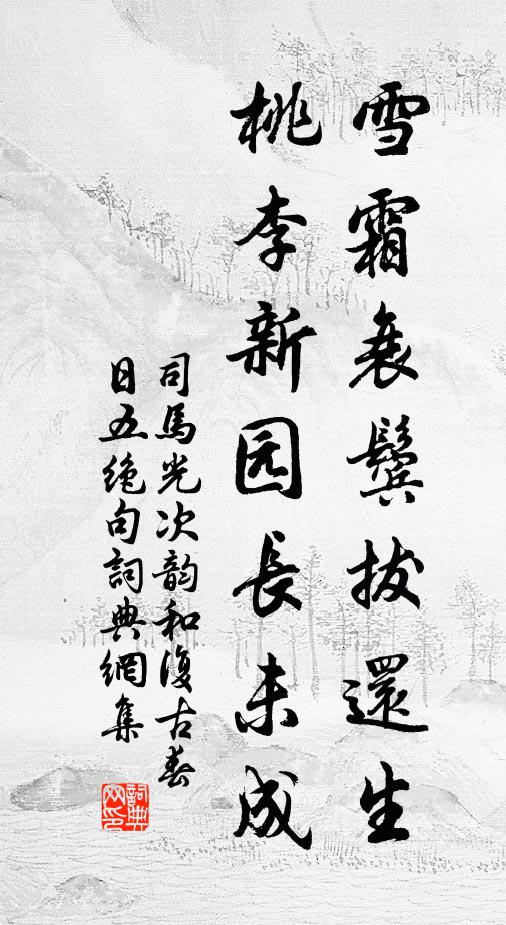 雪霜衰鬢拔還生
桃李新园長未成
司馬光次韵和復古春
日五绝句詞典網集
詞典网印